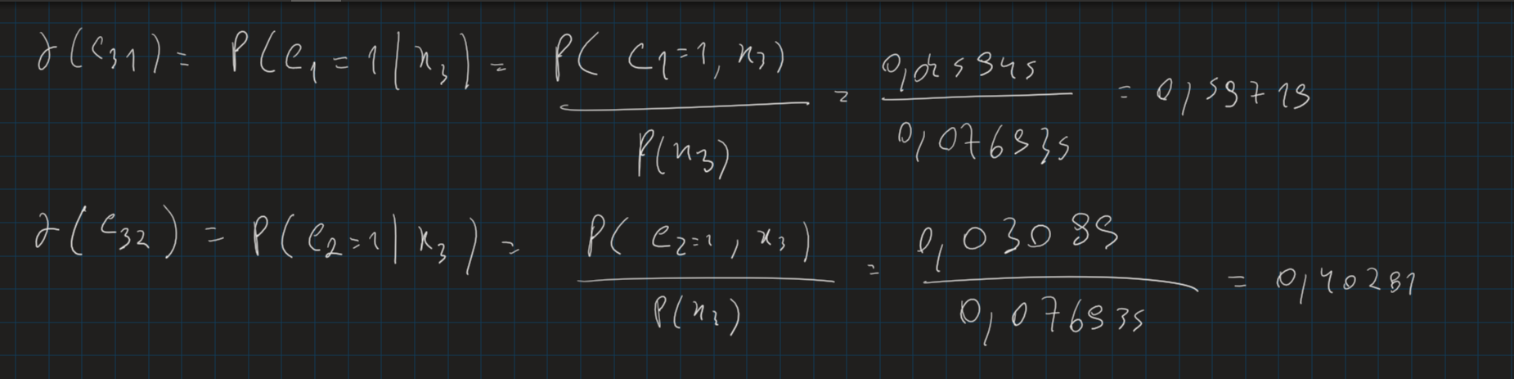 γ(C₃₁) = P(C₁ = 1 | x₃) = P( C₁=1, x₃) / P(x₃) = 0,045945 / 0,076935 = 0,59719
γ(C₃₂) = P(C₂=1 | x₃) = P( C₂=1, x₃) / P(x₃) = 0,03099 / 0,076935 = 0,40281